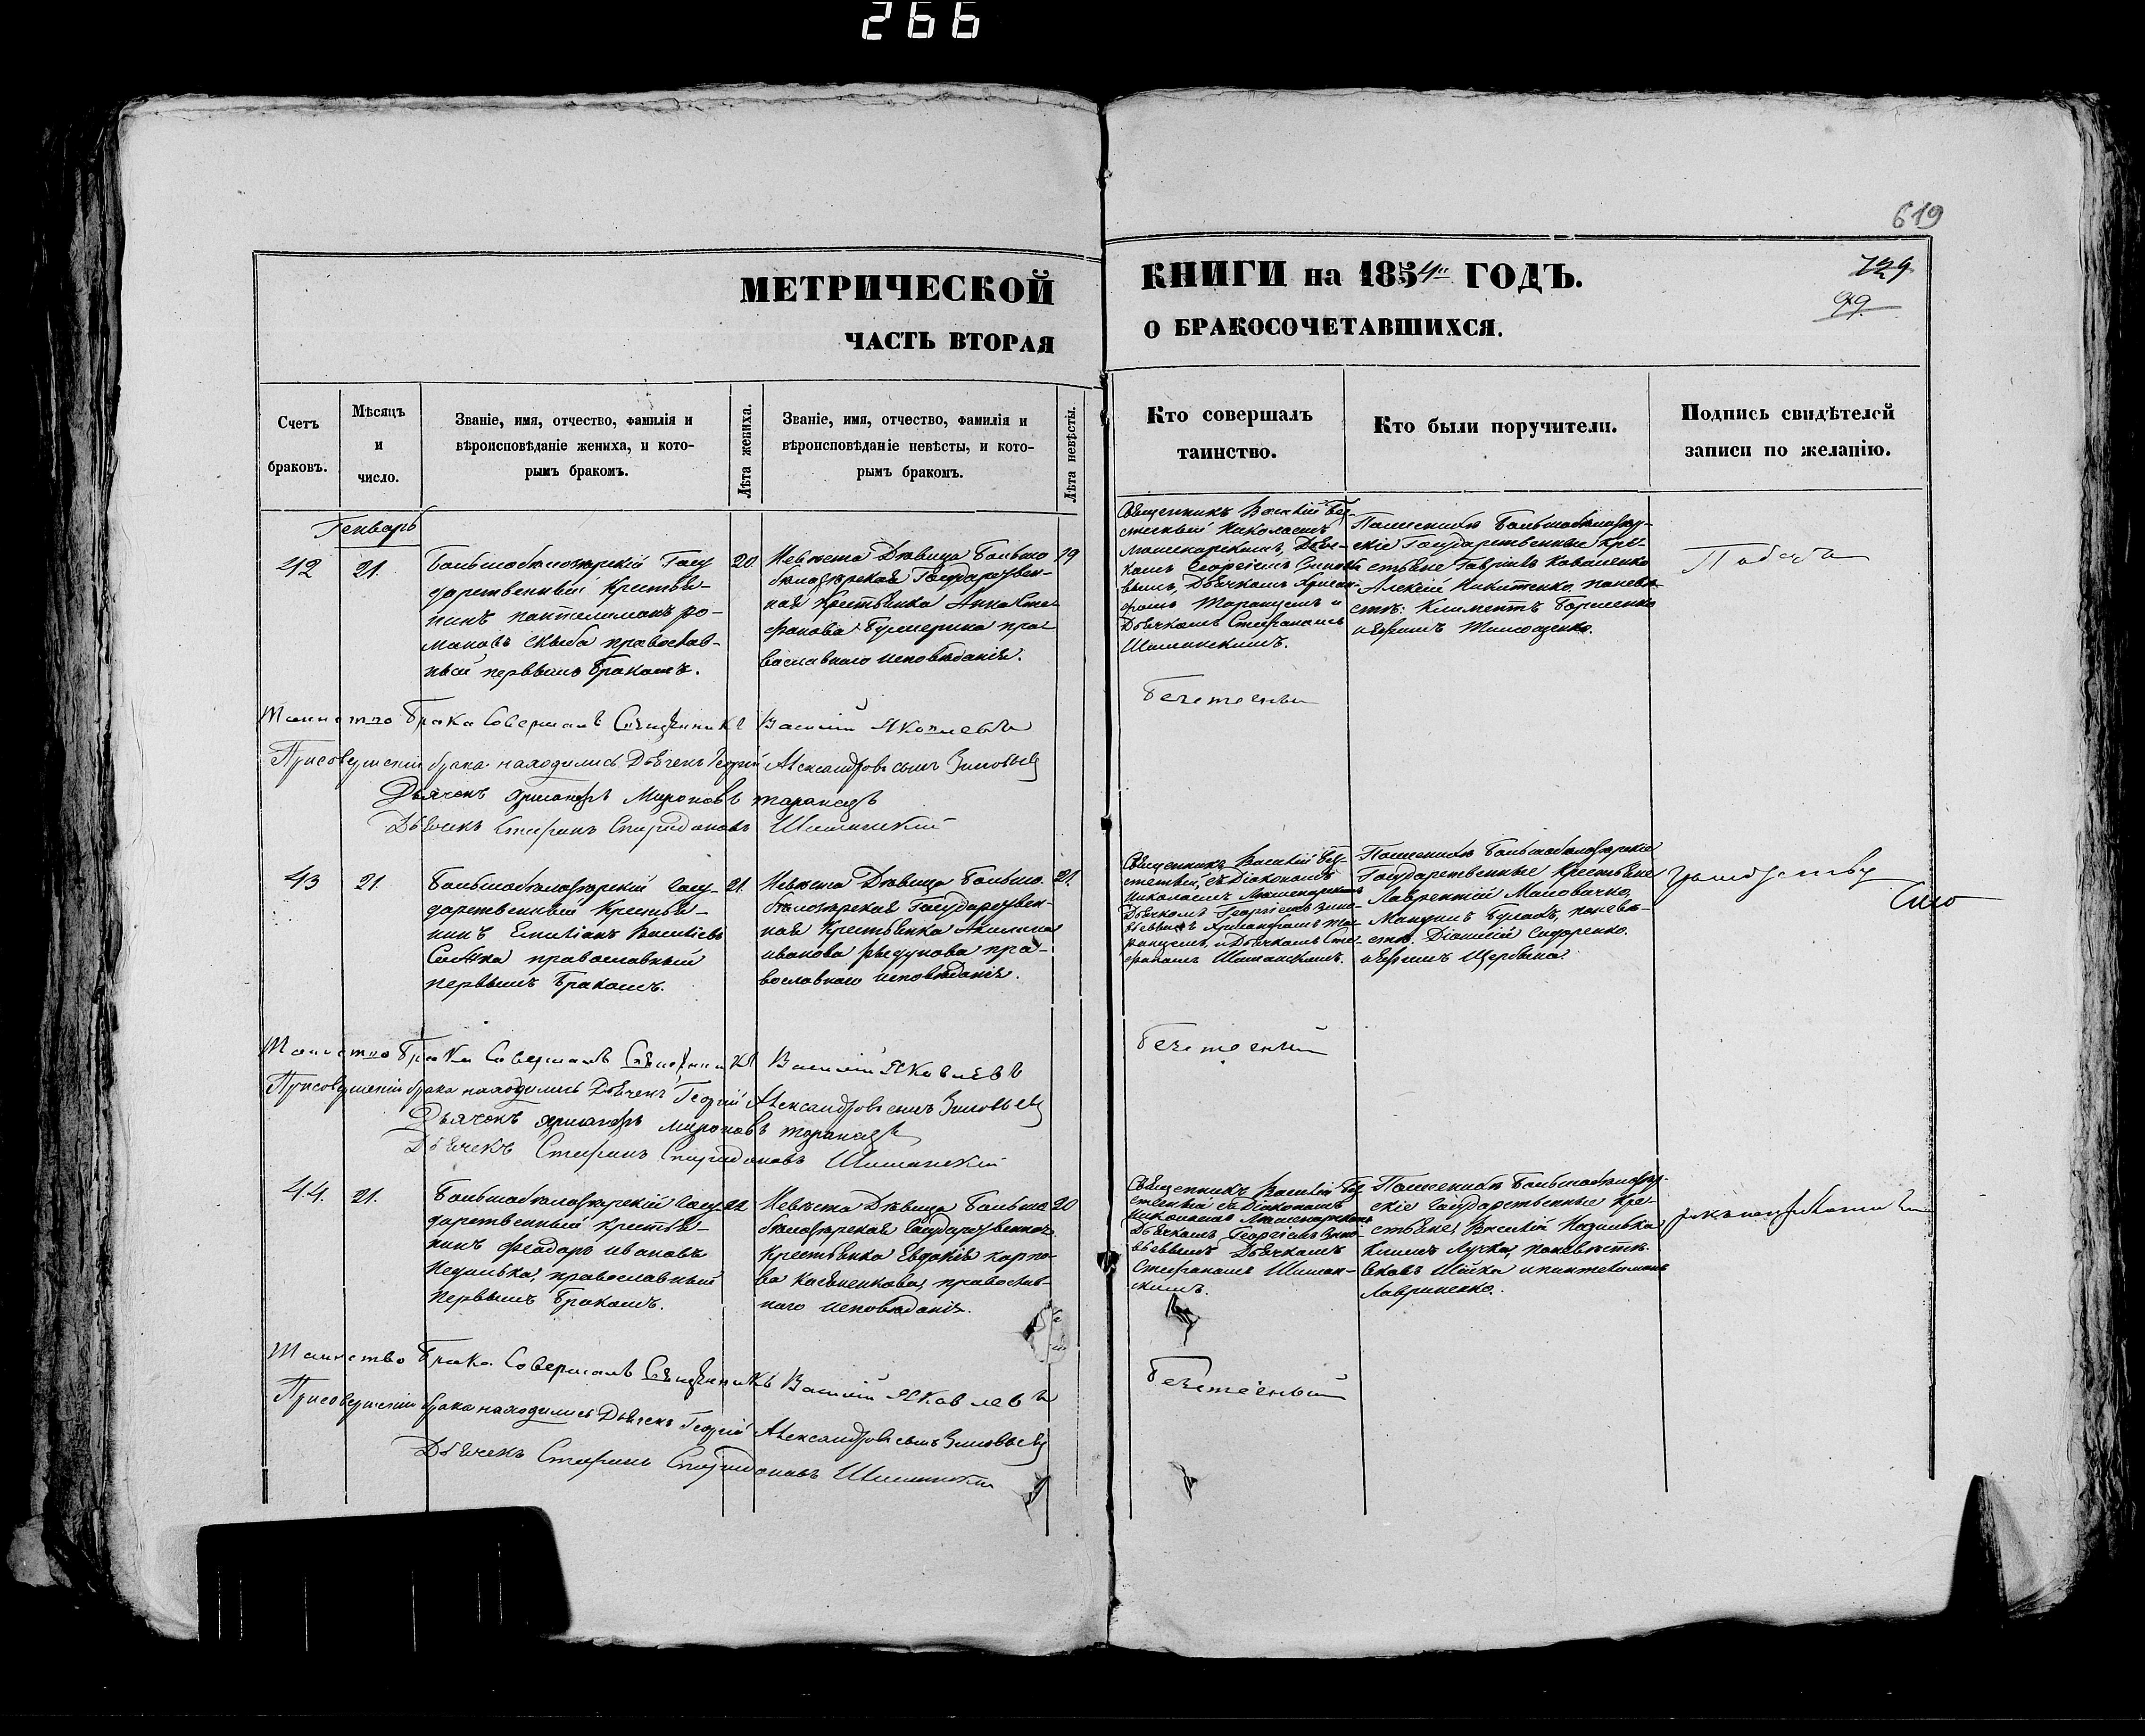 266
619
МЕТРИЧЕСКОЙ
КНИГИ на 1854" ГОДЪ.
729
99.
ЧАСТЬ ВТОРАЯ
О БРАКОСОЧЕТАВШИХСЯ.
Счетъ
браковъ.
Мѣсяцъ
и
число.
Званіе, имя, отчество, фамилія и
вѣроисповѣданіе жениха, и кото-
рымъ бракомъ.
Лѣта жениха.
Званіе, имя, отчество, фамилія и
вѣроисповѣданіе невѣсты, и кото-
рымъ бракомъ.
Лѣта невѣсты.
Кто совершалъ
таинство.
Кто были поручители.
Подпись свидѣтелей
записи по желанію.
Генварь
42
21.
Большобѣлозѣрскій Госу
дарственный Крестья-
нинъ пантелимонъ ро-
мановъ скиба православ-
ный первымъ бракомъ.
20.
Невѣста Дѣвица Больше
бѣлозѣрская Государствен-
ная Крестьянка Анна Сте-
фанова пра-
вославнаго исповѣданія.
19
Священникъ Василій Без-
Николаемъ
Дьяч-
комъ Георгіемъ Зиновь
вымъ, Дьячкомъ Хрисан-
фомъ Таранцемъ и
Дьячкомъ Стефаномъ
Шиманскимъ.
По женихѣ Большобѣлозѣр-
скіе Государственные кре-
стьяне Гавріилъ Коваленко
Алексій Никитенко, по невѣ-
стѣ: Климентъ
и Ефимъ Тимошенко.
Таинство Брака Совершалъ Священникъ Василій Яковлевъ
При совершеніи брака находились Дьячекъ Георгій Александровъ сынъ Зиновьевъ
Дьячокъ Хрисанфъ Мироновъ таранецъ
Дьячекъ Стефанъ Спиридоновъ Шиманскій
43
21.
Большобѣлозѣрскій Госу-
дарственный Крестья-
нинъ Емиліанъ Василіевъ
православный
первымъ бракомъ.
21.
Невѣста Дѣвица Больше.
бѣлозѣрская Государствен-
ная Крестьянка Акилина
иванова пра-
вославнаго исповѣданія.
21.
Священникъ Василій Без-
съ Діакономъ
Николаемъ
Дьячкомъ Георгіемъ Зино-
вьевымъ Хрисанфомъ Та-
ранцемъ, и Дьячкомъ Сте-
фаномъ Шиманскимъ.
По женихѣ Большобѣлозѣрскіе
Государственные Крестьяне
Лаврентій
по невѣ-
стѣ. Діонисій Сидоренко.
и Ефимъ Щербина
Таинство Брака Совершалъ Священникъ Василій Яковлевъ
При совершеніи брака находились Дьячекъ Георгій Александровъ сынъ Зиновьевъ
Дьячокъ Хрисанфъ Мироновъ таранецъ
Дьячекъ Стефанъ Спиридоновъ Шиманскій
44.
21.
Большобѣлозѣрскій Госу-
дарственный Крестья-
нинъ Феодоръ ивановъ
православный
первымъ бракомъ.
22
Невѣста Дѣвица Больше
бѣлозѣрская Государственная
Крестьянка Евдокія карпо-
ва православ-
наго исповѣданія.
20
Священникъ Василій Без-
съ Діакономъ
Николаемъ
Дьячкомъ Георгіемъ Зино-
вьевымъ Дьячкомъ
Стефаномъ Шиман-
скимъ.
По женихѣ Большобѣлозѣр-
скіе Государственные Кре-
стьяне, Василій
по невѣстѣ.
и пантелимонъ
Лавриненко.
Таинство Брака Совершалъ Священникъ Василій Яковлевъ
При совершеніи брака находились Дьячекъ Георгій Александровъ сынъ Зиновьевъ
Дьячекъ Стефанъ Спиридоновъ Шиманскій